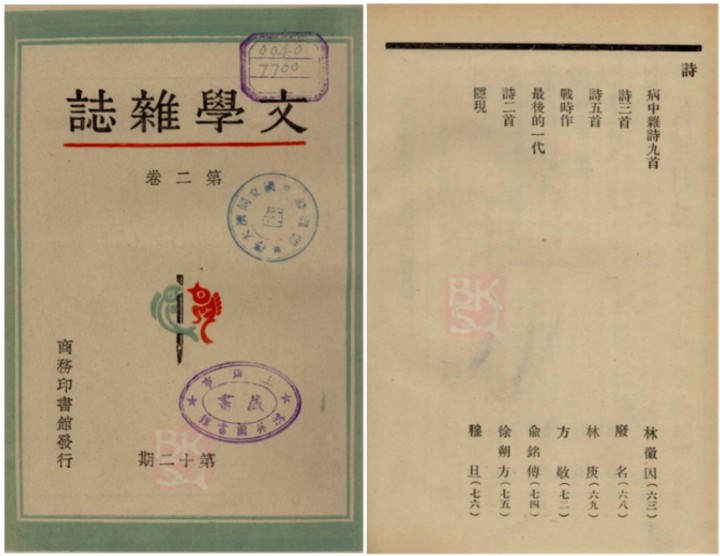 0040
7700
文學雜誌
第二卷
商務印書館發行
第十二期
BK
詩
病中雜詩九首 林徽因(六三)
詩三首 廢名(六八)
詩五首 林庚(六九)
戰時作 方敬(七二)
最後的一代 俞銘傳(七四)
詩二首 徐朔方(七五)
隱現 穆旦(七六)
BK